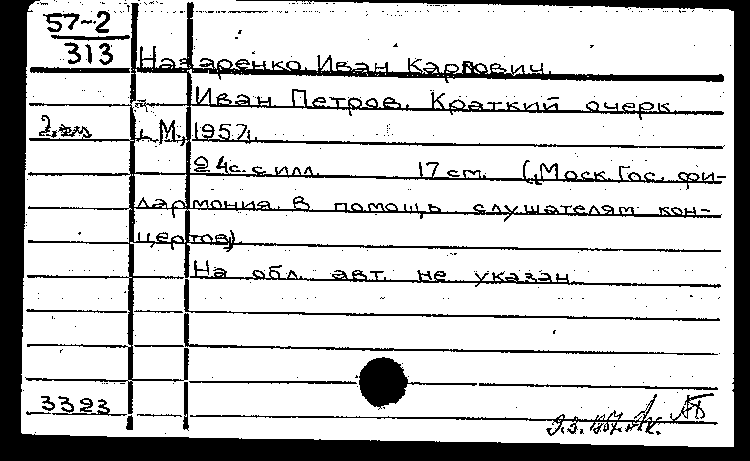 57-2
313
Назаренко, Иван Карпович.
Иван Петров. Краткий очерк.
2 экз
М., 1957.
24с. с илл. 17 см. (Моск. Гос. фи-
лармония. В помощь слушателям кон-
цертов)
На обл. авт. не указан.
3323
АБ